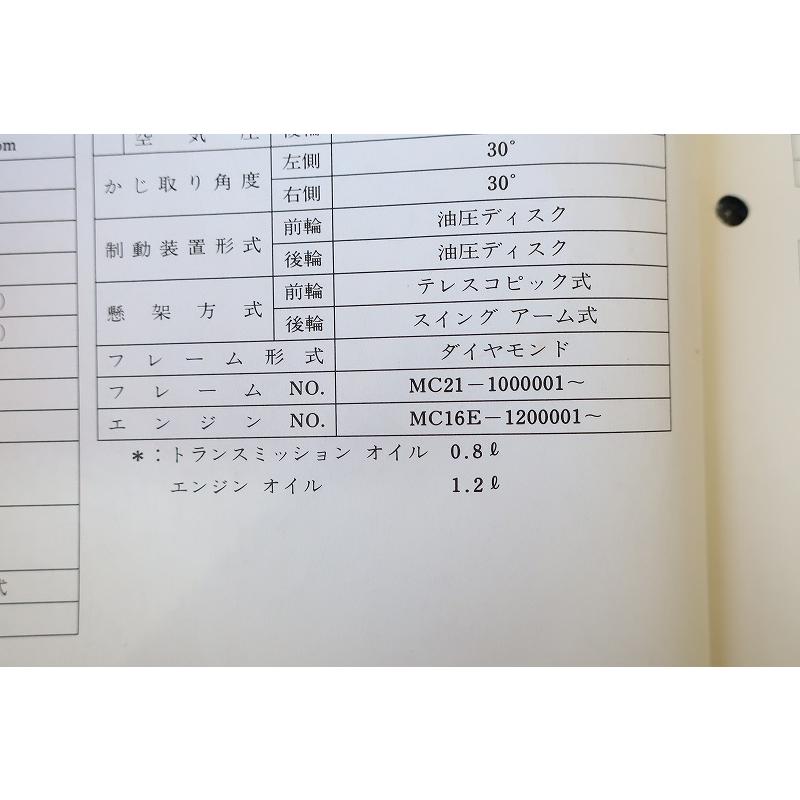 om
空気圧 後輪
かじ取り角度 左側 30°
右側 30°
制動装置形式 前輪 油圧ディスク
後輪 油圧ディスク
懸架方式 前輪 テレスコピック式
後輪 スイング アーム式
フレーム形式 ダイヤモンド
フレーム NO. MC21－1000001～
エンジン NO. MC16E－1200001～
*：トランスミッション オイル 0.8ℓ
エンジン オイル 1.2ℓ
式